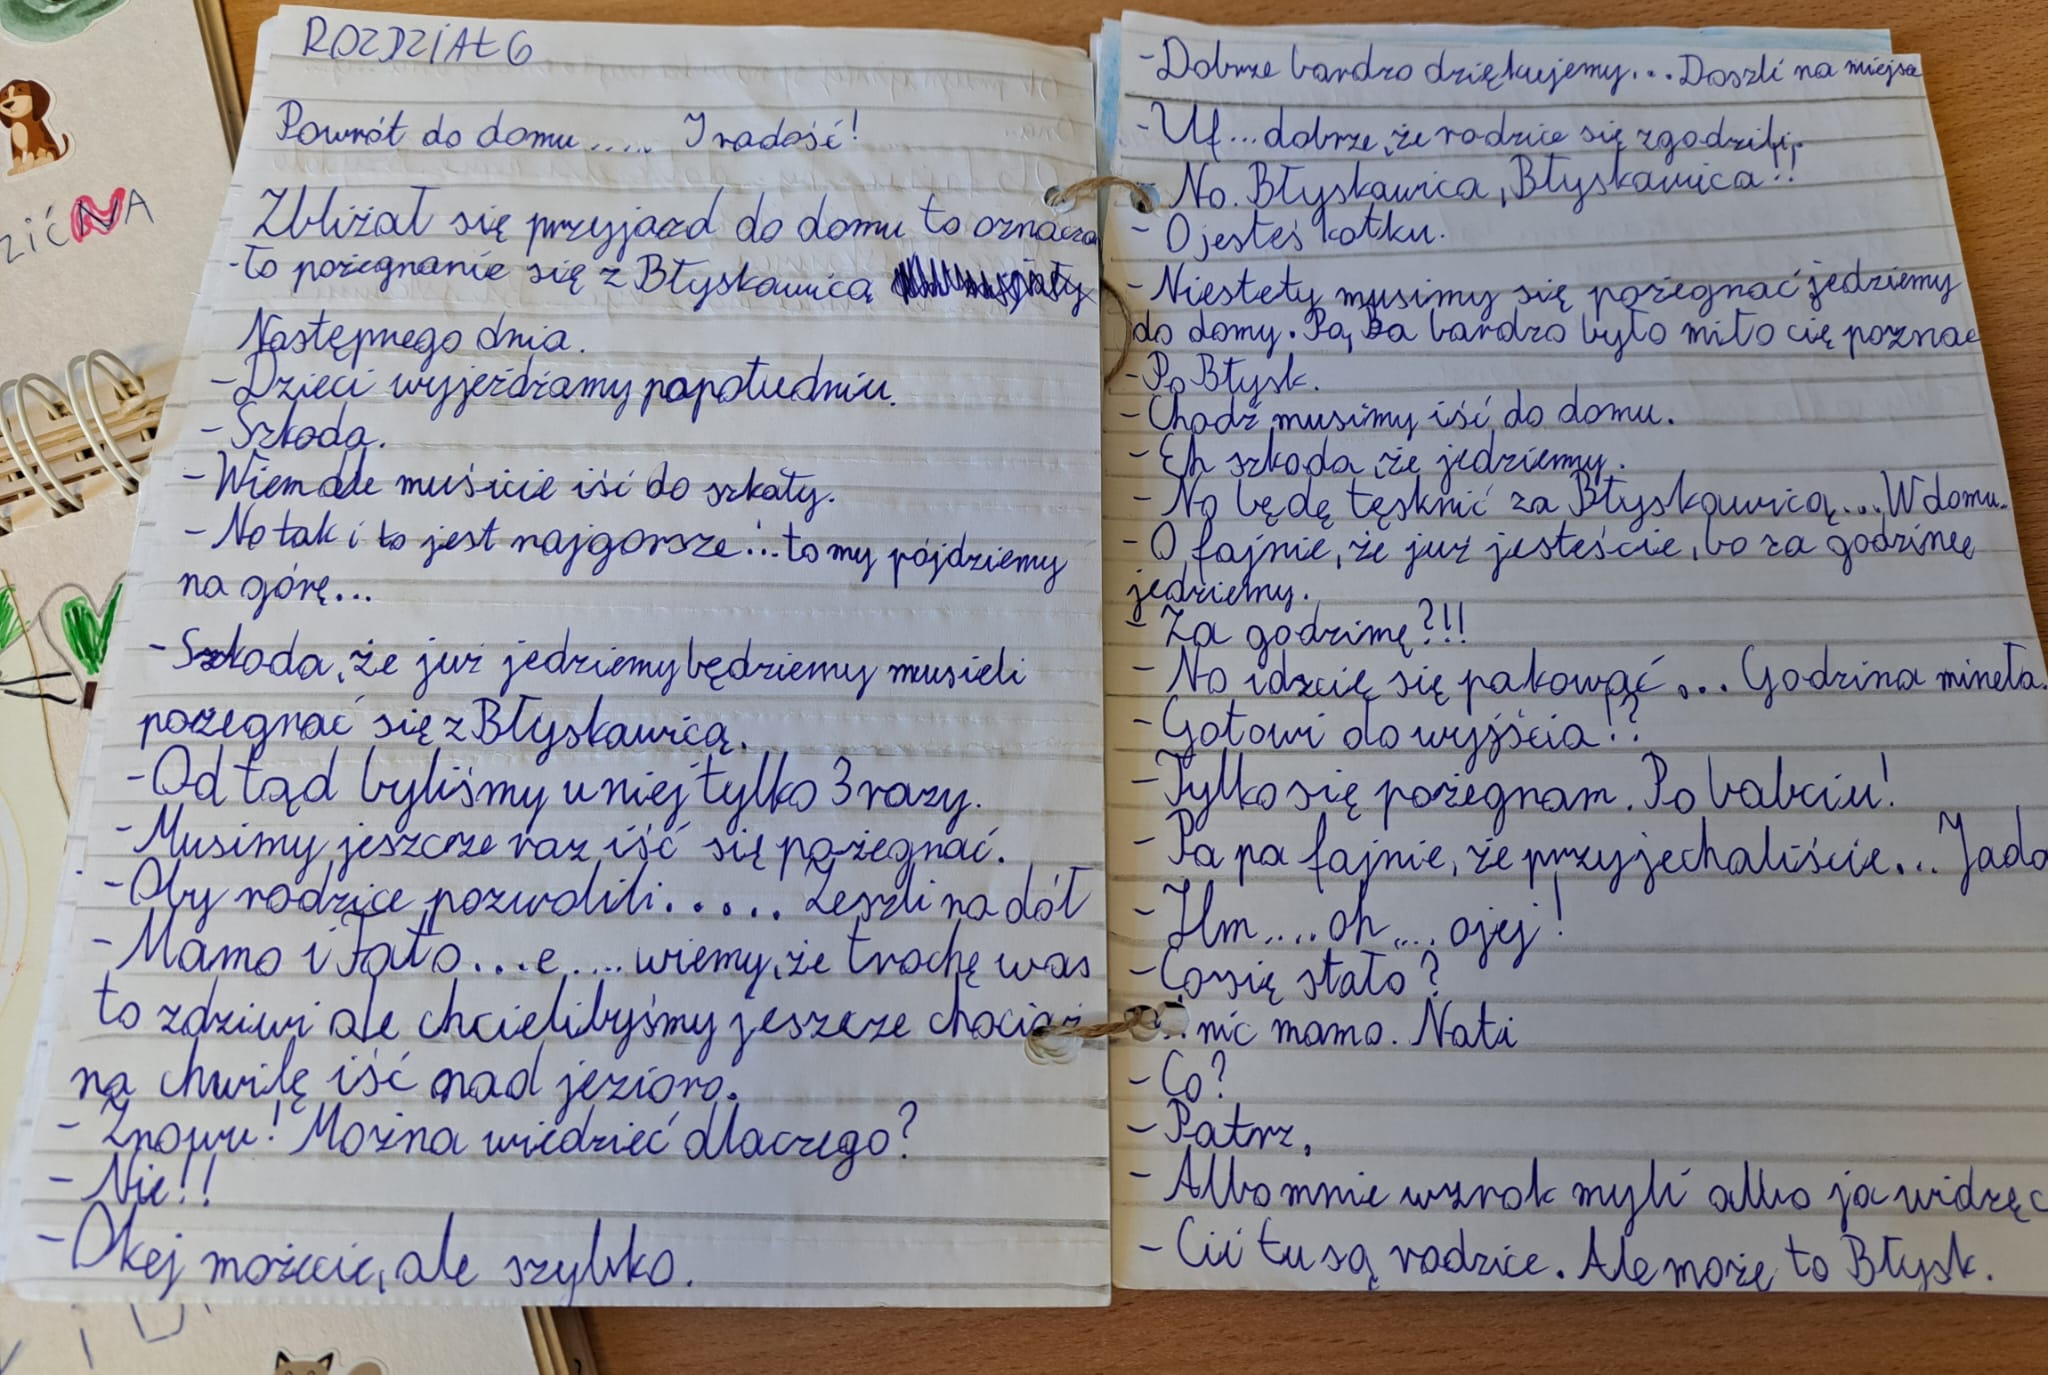 ROZDZIAŁ 6
Powrót do domu..... I radość!
Zbliżał się przyjazd do domu to oznacza
-to pożegnanie się z Błyskawicą
Następnego dnia.
-Dzieci wyjeżdżamy popołudniu.
-Szkoda.
-Wiem ale muśicie iść do szkoły.
-No tak i to jest najgorsze... to my pójdziemy
na górę...
-Szkoda, że już jedziemy będziemy musieli
pożegnać się z Błyskawicą.
-Od tąd byliśmy u niej tylko 3 razy.
-Musimy jeszcze raz iść się pożegnać.
-Oby rodzice pozwolili..... Zeszli na dół
-Mamo i Tato...e.... wiemy, że trochę was
to zdziwi ale chcielibyśmy jeszcze chociaż
na chwilę iść nad jezioro.
-Znowu! Można wiedzieć dlaczego?
-Nie!!
-Okej możecie, ale szybko.
-Dobrze bardzo dziękujemy... Doszli na miejsce
-Uf...dobrze, że rodzice się zgodzili.
-No. Błyskawica, Błyskawica!!
-O jesteś kotku.
-Niestety musimy się pożegnać jedziemy
do domy. Pa, Pa bardzo było miło cię poznać
-Pa Błysk.
-Chodź musimy iść do domu.
-Eh szkoda, że jedziemy.
-No będę tęsknić za Błyskawicą... W domu.
-O fajnie, że już jesteście, bo za godzinę
jedziemy.
-Za godzinę?!!
-No idzcię się pakować... Godzina mineła.
-Gotowi do wyjścia!?
-Tylko się pożegnam. Pa babciu!
-Pa pa fajnie, że przyjechaliście... Jadą
-Hm....oh....ojej!
-Co się stało?
..nic mamo. Nati
-Co?
-Patrz,
-Albo mnie wzrok myli albo ja widzę c
-Cii tu są rodzice. Ale może to Błysk.
ZIĆNA